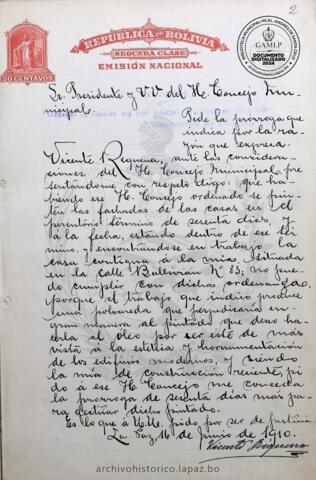 2
REPÚBLICA DE BOLIVIA
SEGUNDA CLASE
EMISIÓN NACIONAL
20 CENTAVOS
GAMLP
DOCUMENTO
DIGITALIZADO
2024
Sr. Presidente y VV del H. Concejo Mu-
nicipal.
Pide la prorroga que
indica por la ra-
zón que expresa.
Vicente Requena, ante las considera-
ciones del H. Concejo Municipal, pre-
sentándome con respeto digo: que ha-
biendo ese H. Concejo ordenado se pin-
ten las fachadas de las casas en el
perentorio término de sesenta dias, y
á la fecha, estando dentro de ese tér-
mino, y encontrándose en trabajo la
casa contigua á la mia, situada
en la calle Ballivian Nº 85; no pue-
do cumplir con dicha ordenanza,
porque el trabajo que indico produce
una polvareda que perjudicaria en
gran manera al pintado que deseo ha-
cerla al óleo por ser esto de mas
vista á la estética y hornamentación
de los edificios modernos, y siendo
la mia de construcción reciente, pi-
do á ese H. Concejo me conceda
la prorroga de sesenta dias mas pa-
ra efectuar dicho pintado.
Es lo que á U. Ile. pido por ser de justicia.
La Paz, 16 de junio de 1910.
Vicente Requena
archivohistorico.lapaz.bo